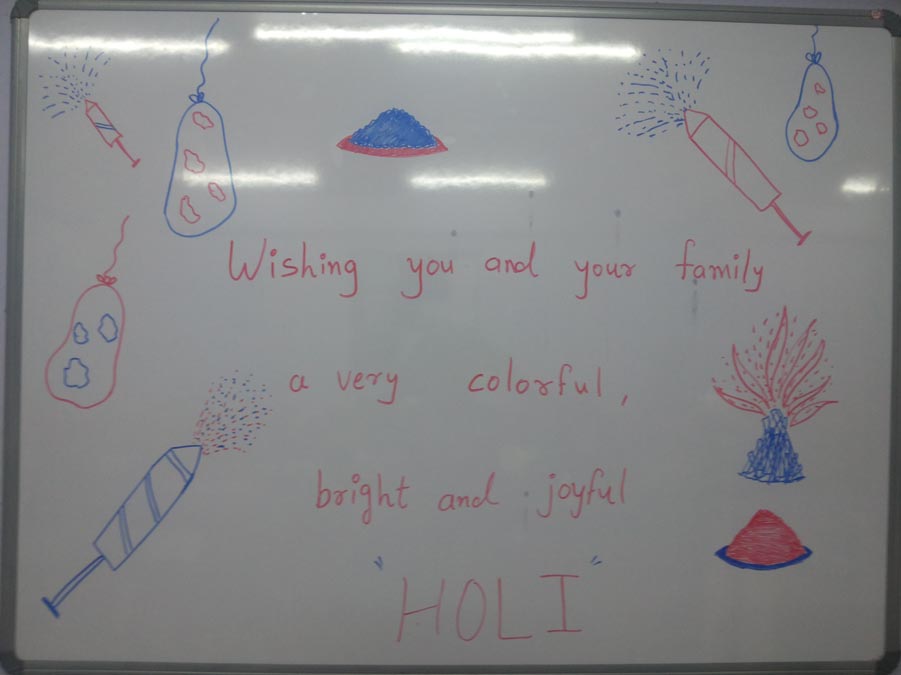 Wishing you and your family
a very colorful,
bright and joyful
"HOLI"